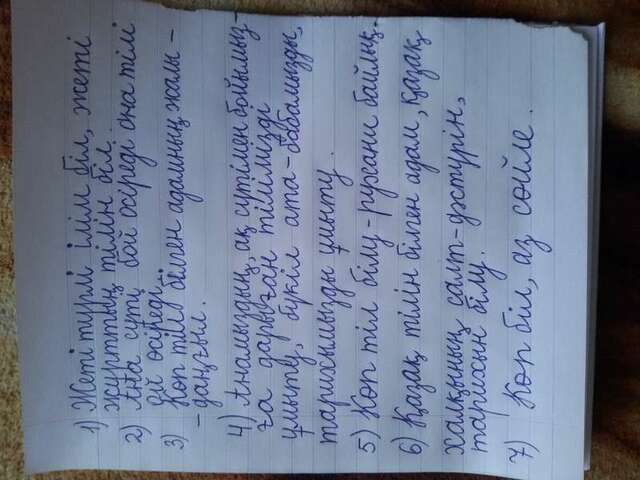 1) Жеті түрлі ілім біл, жеті
жұрттың тілін біл.
2) Ана сүті бой өсіреді ана тілі
ой өсіреді.
3) Көп тілб білген адамның жалы -
- даңғыл.
4) Анамыздың, ақ сүтімен бойымыз-
ға дарыған тілімізді
ұмыту, бүкіл ата-бабамызды,
тарихымызды ұмыту.
5) Көп тіл білу-рухани байлық.
6) Қазақ тілін білген адам, қазақ
халқының салт-дәстүрін,
тарихын білу.
7) Көп біл, аз сөйле.